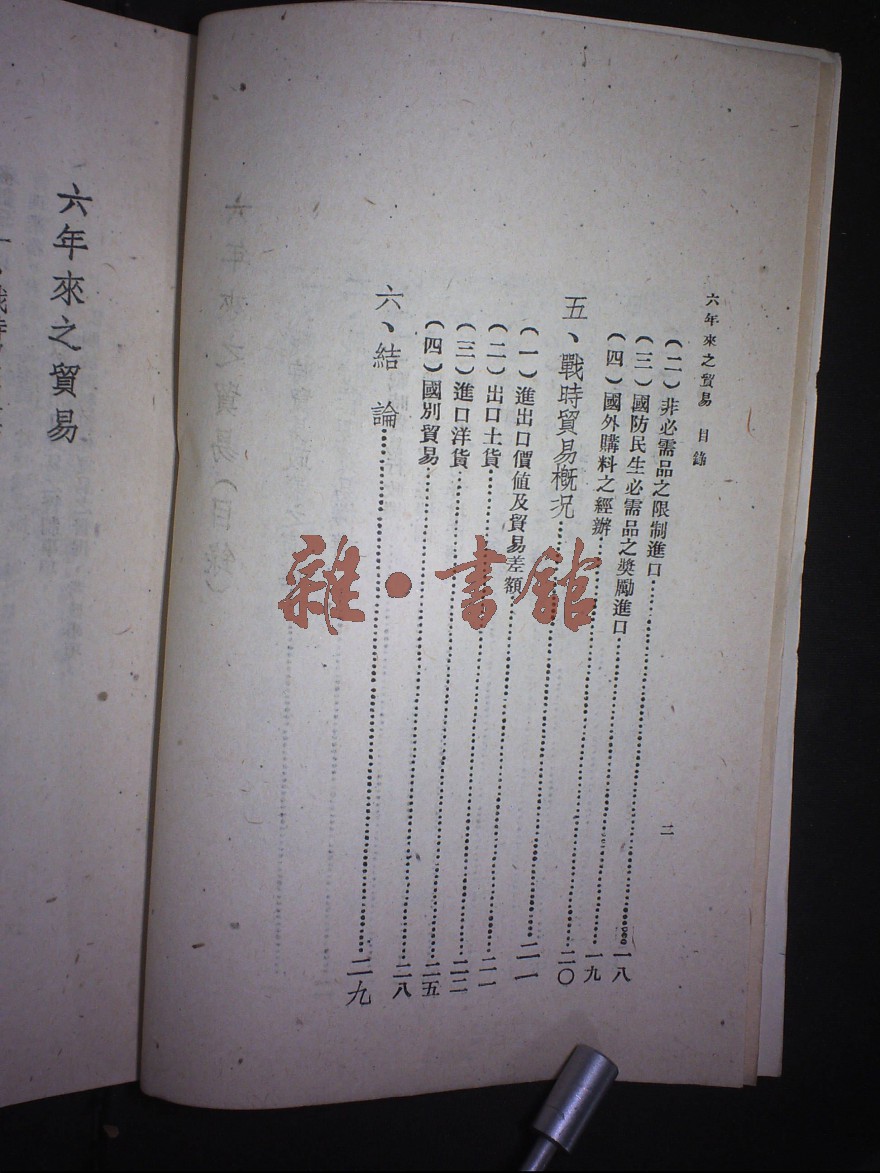 六年來之貿易 目錄
二
(二)非必需品之限制進口……一八
(三)國防民生必需品之獎勵進口……一九
(四)國外購料之經辦……二〇
五、戰時貿易概況……二一
(一)進出口價值及貿易差額……二一
(二)出口土貨……二二
(三)進口洋貨……二五
(四)國別貿易……二八
六、結論……二九
六年來之貿易
雜·書館